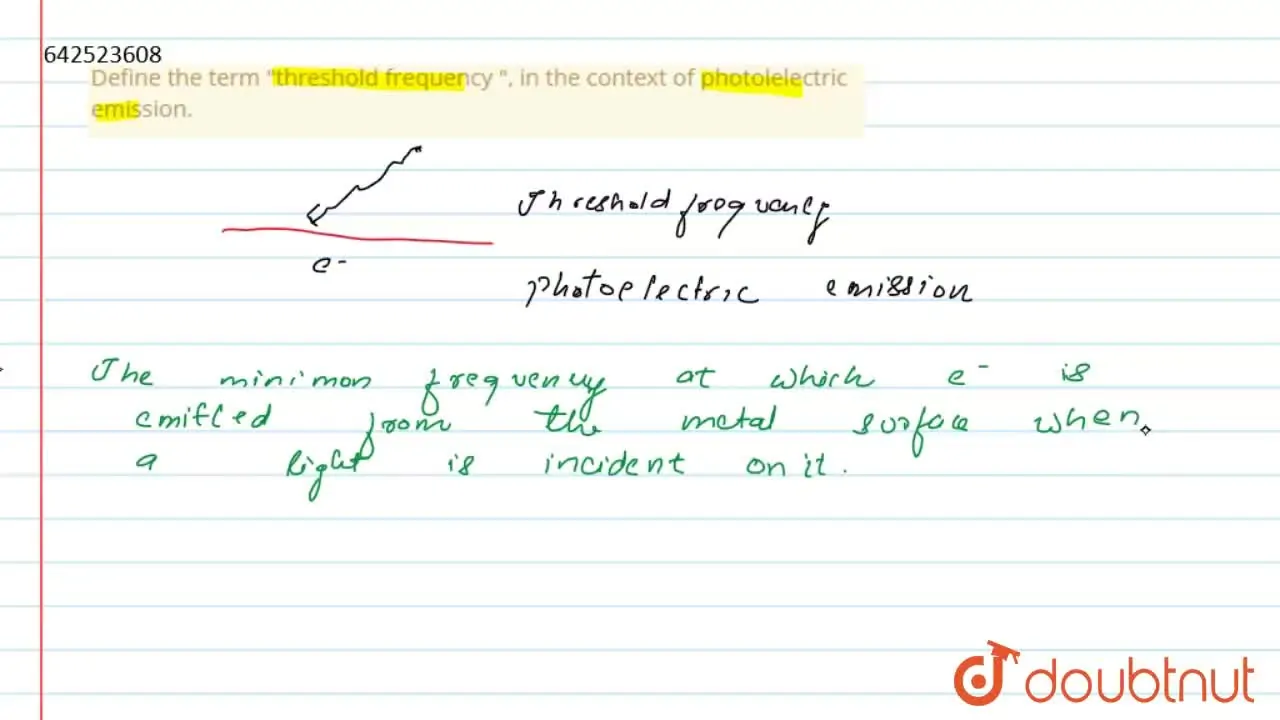 642523608
Define the term "threshold frequency ", in the context of photolelectric
emission.
Threshold frequency
photoelectric emission
e-
The minimon frequency at which e- is
emitted from the metal surface when
a light is incident on it.
doubtnut